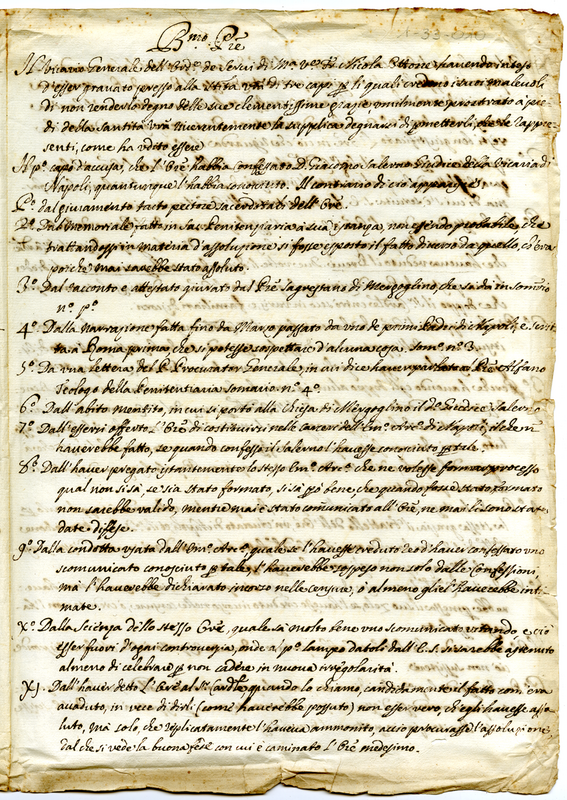 Bmo. Pre
Il Vicario Generale dell'Ord.e de Servi di Ma. Va. Fr. Nicola Ettore havendo inteso
d'esser gravato presso alla Stità vrã di tre capi li quali credono i suoi malevoli
di non renderlo degno delle sue clementissime grazie, umilmente prostrato a pie-
di della Santità vrã riverentemente la supplica degnarsi di pmetterli, che le rappre-
senti, come ha udito essere
Il p.o capo d'accusa, che l'Ore habbia confessato D. Giacomo Salerno Giudice della Vicaria di
Napoli, quantunque l'habbia conosciuto. Il contrario di ciò apparisce
P.o dal giuramento tacto pectore sacerdotali dell'Ore.
2.o Dal Memoriale fatto in Sac. Penitenziaria à sua istanza, non essendo probabile, che
trattandosi in materia d'assoluzione si fosse esposto il fatto diverso da quello, ch'era
poiche mai sarebbe stato assoluto.
3.o Dal racconto e attestato giurato del Pre Sagrestano di Mergoglino, che si dà in somrio
n.o p.o
4.o Dalla narrazione fatta fino da Marzo passato da uno de primi Padri di Napoli, e scrit-
ta à Roma prima, che si potesse sospettare d'alcuna cosa. Som.o n.o 3.
5.o Da una lettera del P. Procurator Generale, in cui dice haver parlato al Pre Alfano
Teologo della Penitentiaria somario n.o 4.o
6.o Dall'abito mentito, in cui si portò alla Chiesa di Mergoglino il do. Giudice Salerno
7.o Dall'essersi offerto l'Ore di costituirsi nelle carceri dell'Em.o Arc.o di Napoli, il che nõ
haverebbe fatto, se quando confessò il Salerno l'havesse conosciuto p tale.
8.o Dall'haver pregato istantemente lo stesso Em.o Arc.o che ne volesse formar processo
qual non si sà, se sia stato formato, si sà pò bene, che quando fosse stato formato
non sarebbe valido, mentre mai è stato comunicato all'Ore, ne mai li sono state
date difese.
9.o Dalla condotta usata dall'Em.o Arc.o, quale se l'havesse creduto reo d'haver confessato uno
scomunicato conosciuto p tale, l'haverebbe sospeso non solo dalle confessioni
mà l'haverebbe dichiarato incorso nelle censure, ò almeno gliel'haverebbe inti-
mate.
X.o Dalla scienza dello stesso Ore, quale sà molto bene uno scomunicato vitando, e ciò
esser fuori d'ogni controversia, onde al p.o lampo datoli dall'E.S. si sarebbe astenuto
almeno di celebrare p non cadere in nuova irregolarità.
XI. Dall'haver detto l'Ore al Sr. Cardle, quando lo chiamò, candidamente il fatto com'era
accaduto, in vece di dirli (come haverebbe possuto) non esser vero, ch'egli havesse asso-
luto, mà solo, che replicatamente l'haveva ammonito, acciò procurasse l'assoluzione
dal che si vede la buona fede con cui è caminato l'Ore medesimo.